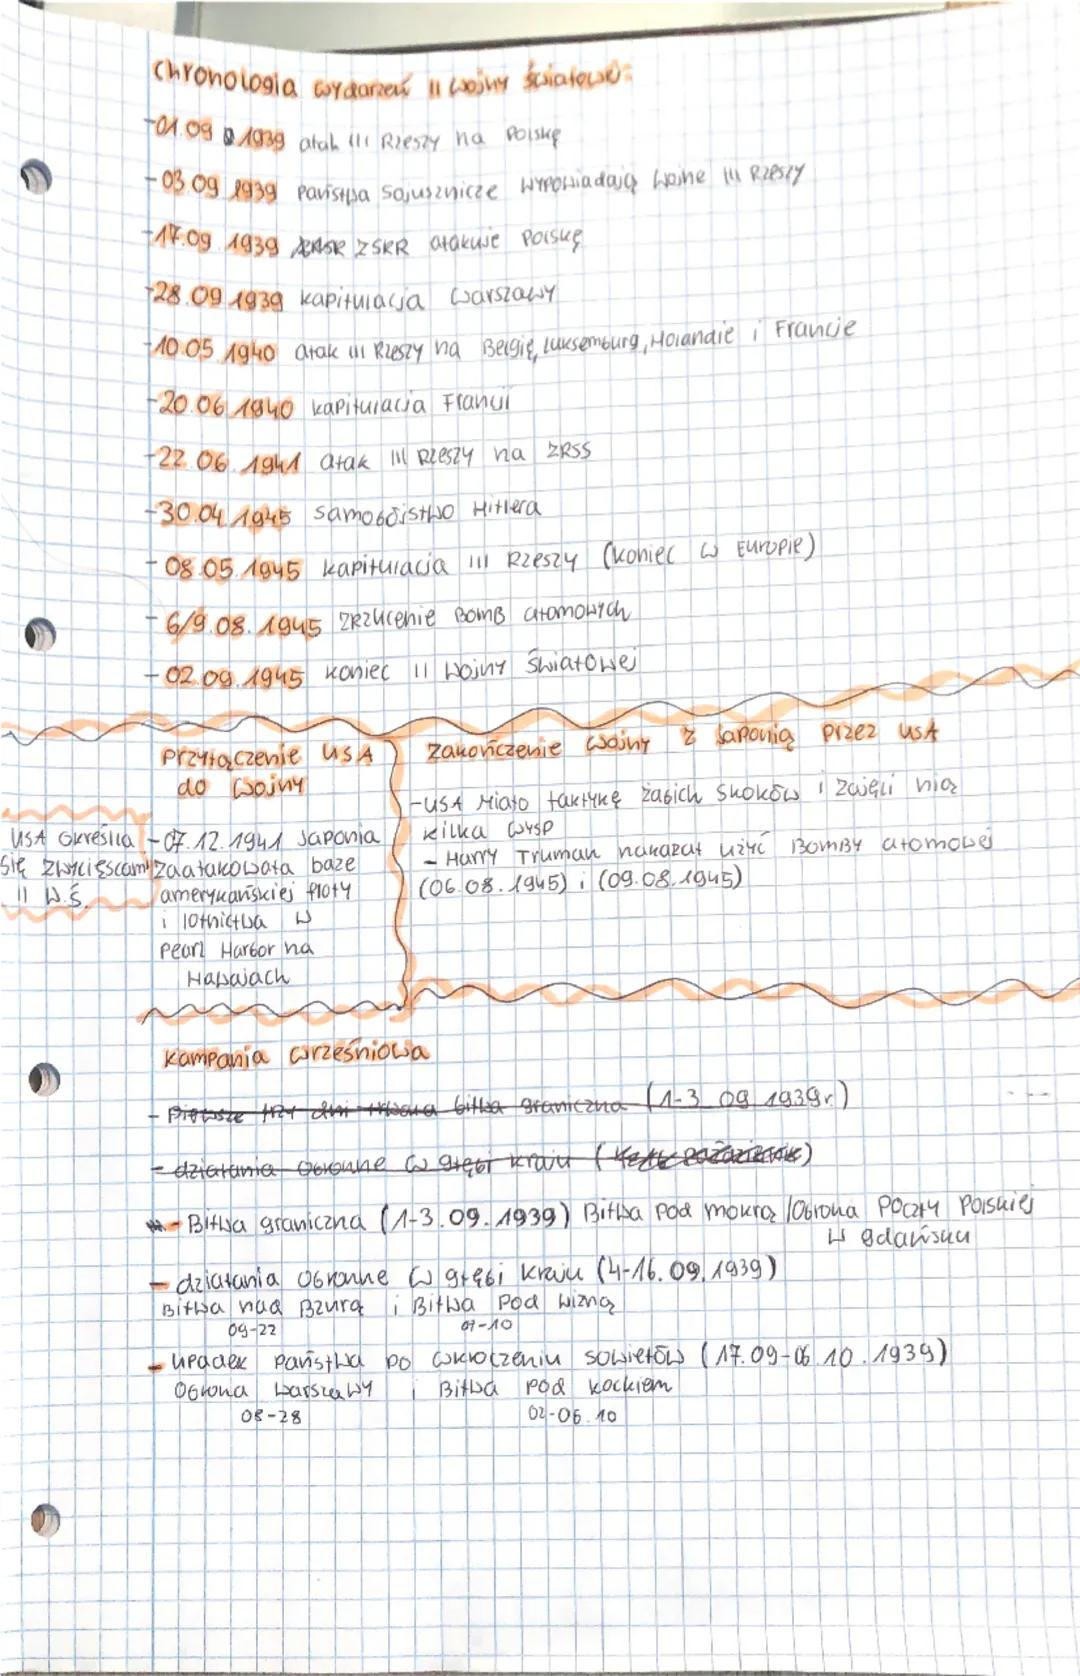 Chronologia wydarzeń II wojny światowej:
-01.09 1939 atak III Rzeszy na Polskę
-03.09 1939 państwa sojusznicze wypowiadają wojne III Rzeszy
-17.09 1939 ZSRR atakuje Polskę
-28.09 1939 kapitulacja Warszawy
-10.05 1940 atak III Rzeszy na Belgię, Luksemburg, Holandie i Francje
-20.06 1940 kapitulacja Francji
-22.06.1941 atak III Rzeszy na ZRSS
-30.04 1945 samobójstwo Hitlera
-08.05.1945 kapitulacja III Rzeszy (koniec w Europie)
-6/9.08.1945 zrzucenie Bomb atomowych
-02.09.1945 koniec II Wojny Światowej
Przyłączenie USA
do wojny
USA określa
się zwycięscami
II W.Ś.
-07.12.1941 Japonia
zaatakowała baze
amerykańskiej floty
i lotnictwa w
Pearl Harbor na
Hawajach
Zakończenie wojny z Japonią przez USA
-USA miało taktykę żabich skoków i zajęli nią
kilka wysp
- Harry Truman nakazał użyć Bomby atomowej
(06.08.1945) i (09.08.1945)
Kampania wrześniowa
- Pierwsze trzy dni trwała bitwa graniczna (1-3 09 1939r.)
- działania obronne w głębi kraju
- Bitwa graniczna (1-3.09.1939) Bitwa pod mokrą / Obrona Poczty Polskiej
w gdańsku
- działania obronne w głębi kraju (4-16.09.1939)
Bitwa nad Bzurą i Bitwa pod wizną
09-22 07-10
- upadek państwa po wkroczeniu sowietów (17.09-06.10.1939)
Obrona Warszawy i Bitwa pod kockiem
08-28 02-06.10